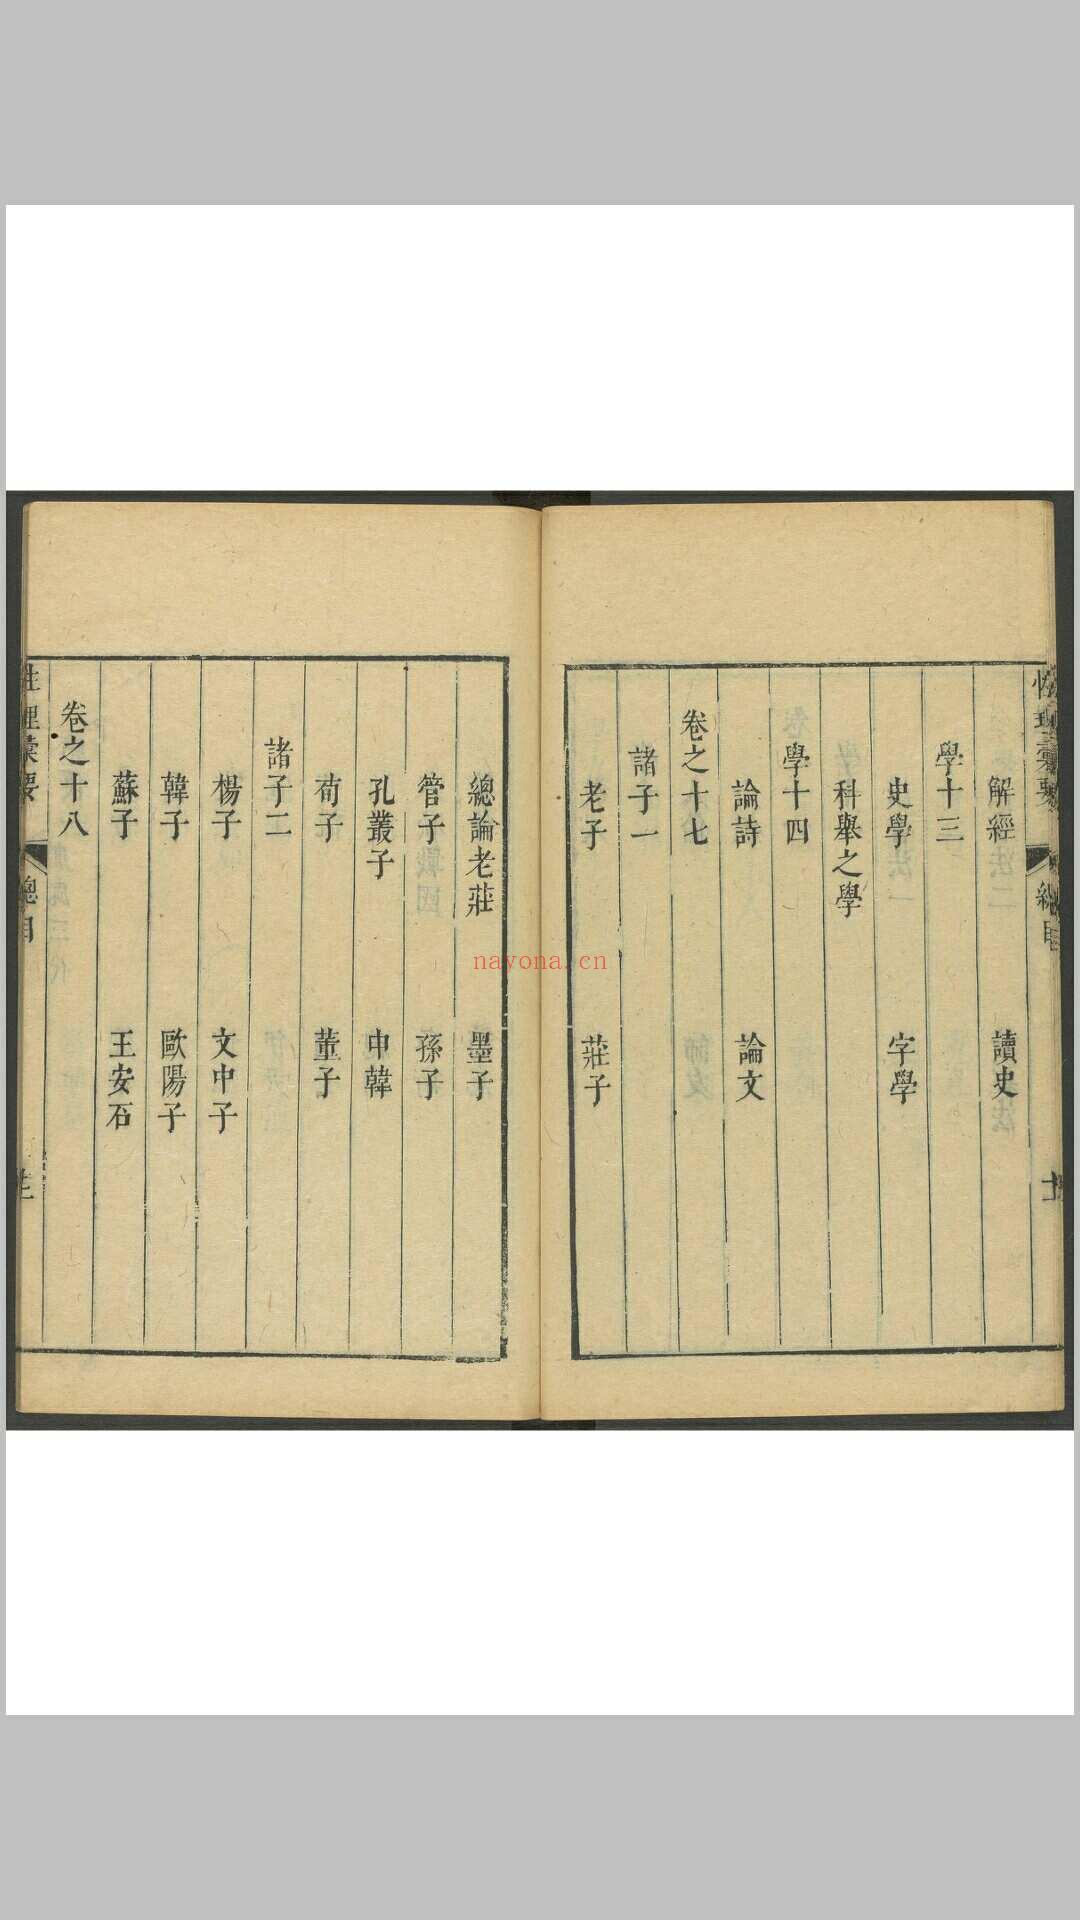 解經 讀史
學十三
史學 字學
科舉之學
學十四
論詩 論文
卷之十七
諸子一
老子 莊子
總論老莊 墨子
管子 孫子
孔叢子 申韓
荀子 董子
諸子二
楊子 文中子
韓子 歐陽子
蘇子 王安石
卷之十八
總目
nayona.cn